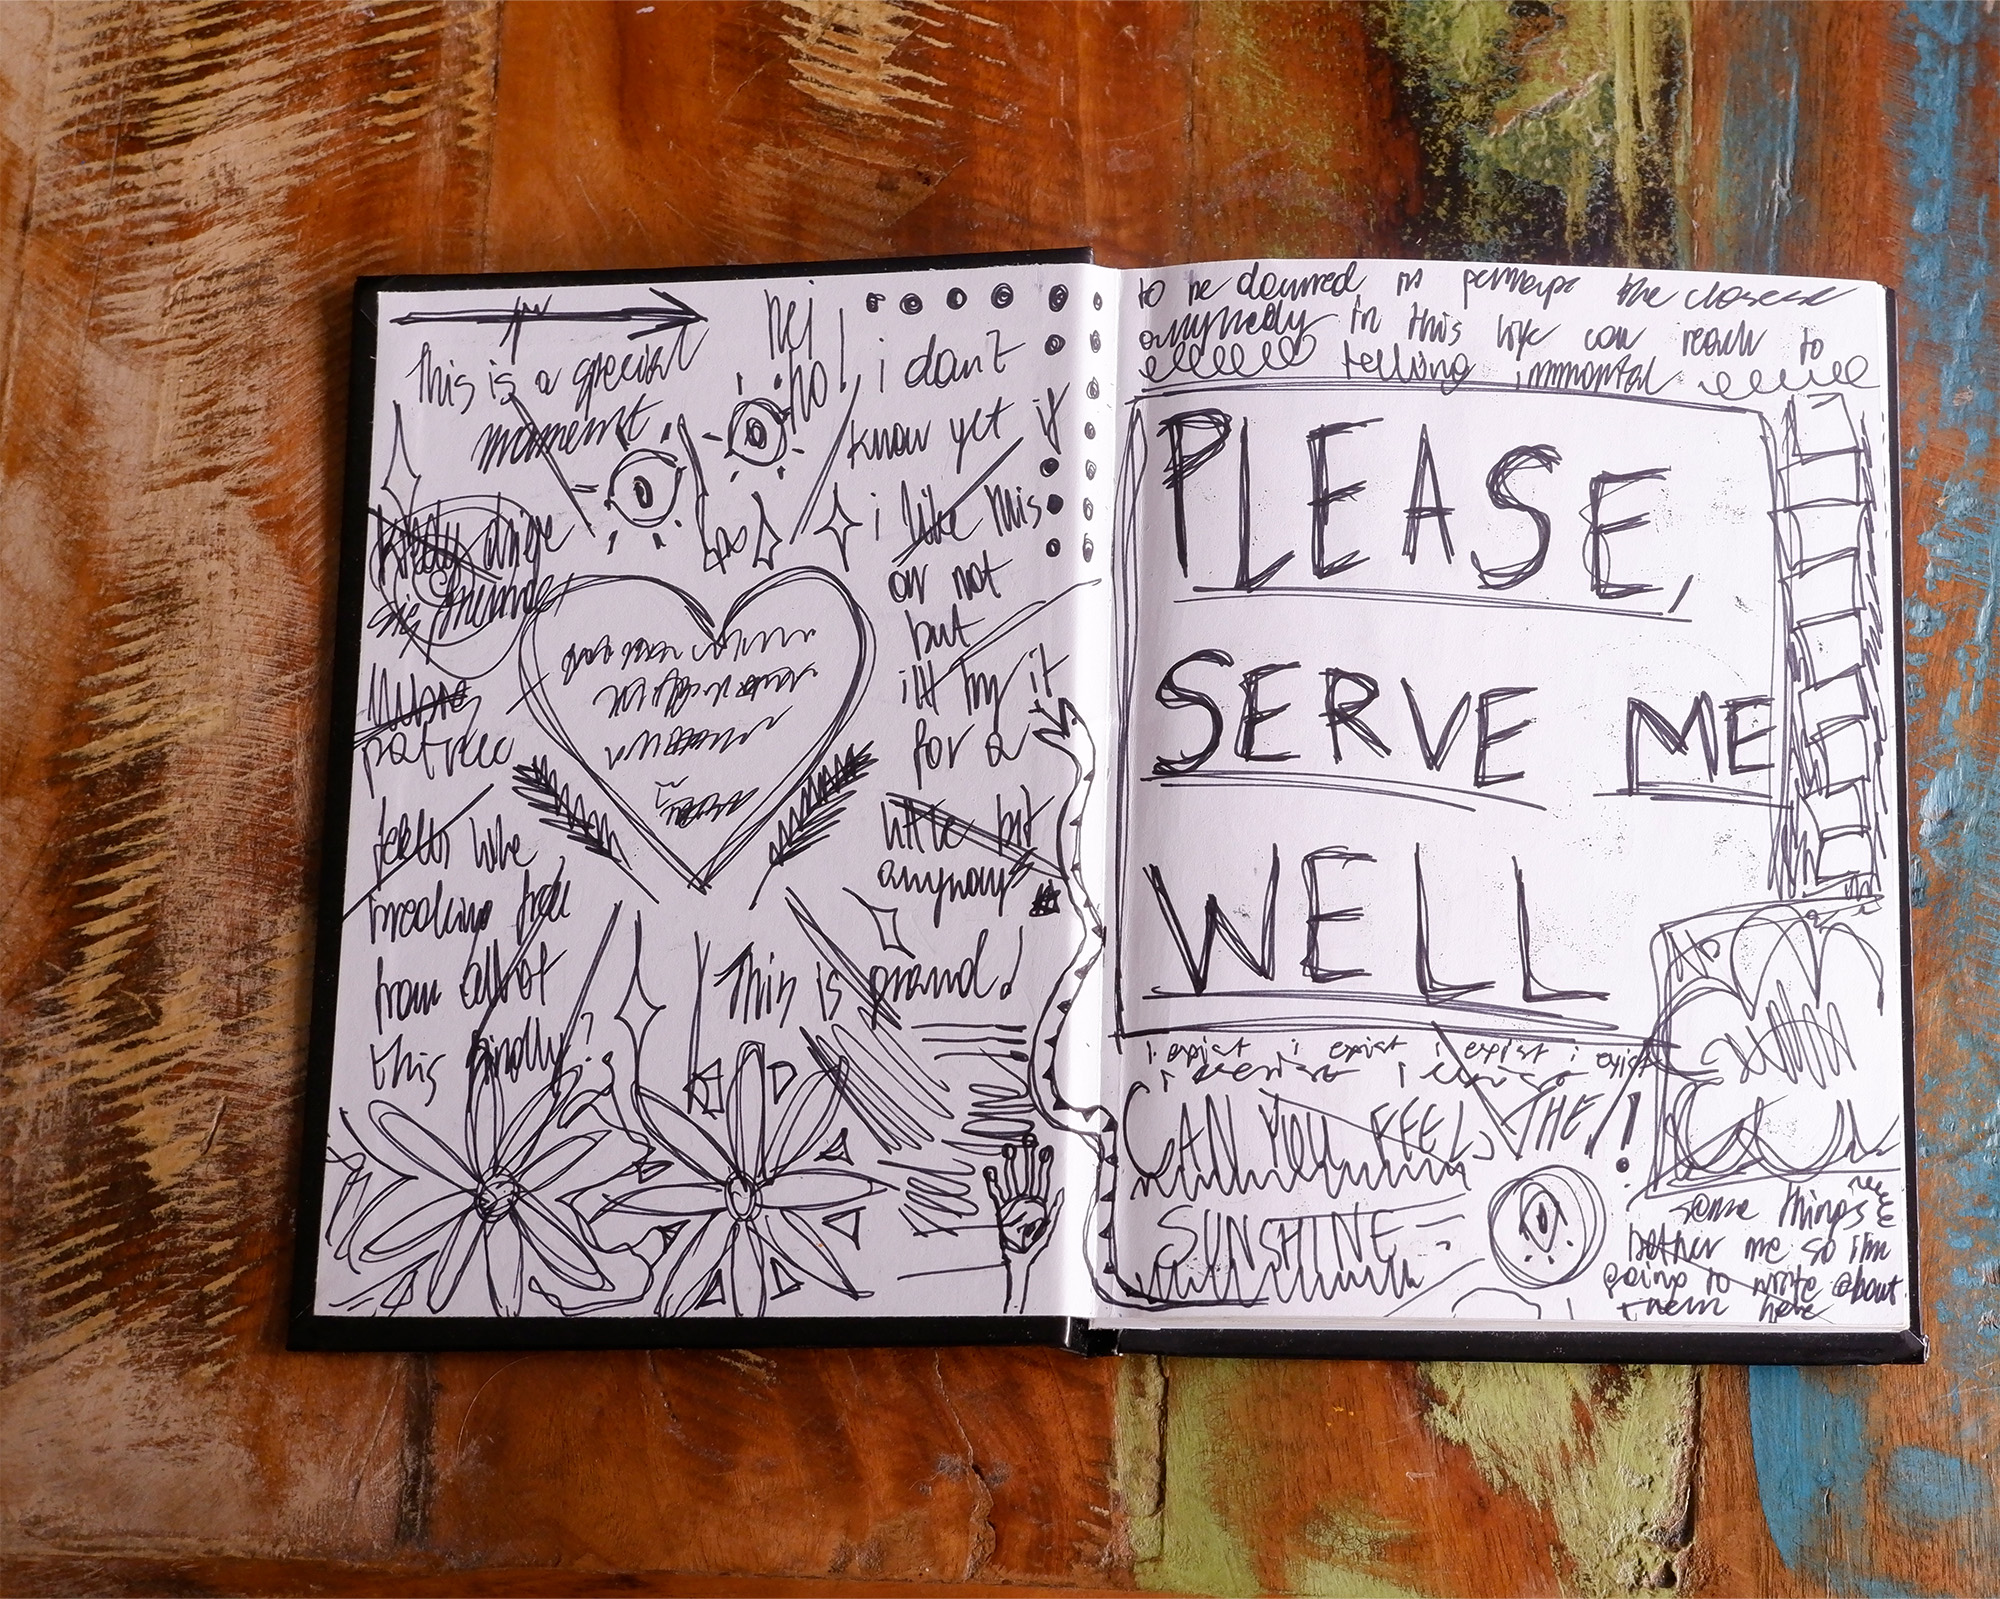 this is a special
moment
hei
ho!
i don't
know yet if
i like this
or not
but
i'll try it
for a
little bit
anyway
feels like
breaking free
from all of
this finally?
This is grand!
to be doomed is perhaps the closest
anybody in this life can reach to
feeling immortal
PLEASE,
SERVE ME
WELL
i exist i exist i exist i exist
CAN YOU FEEL THE
SUNSHINE
some things
bother me so i'm
going to write about
them here